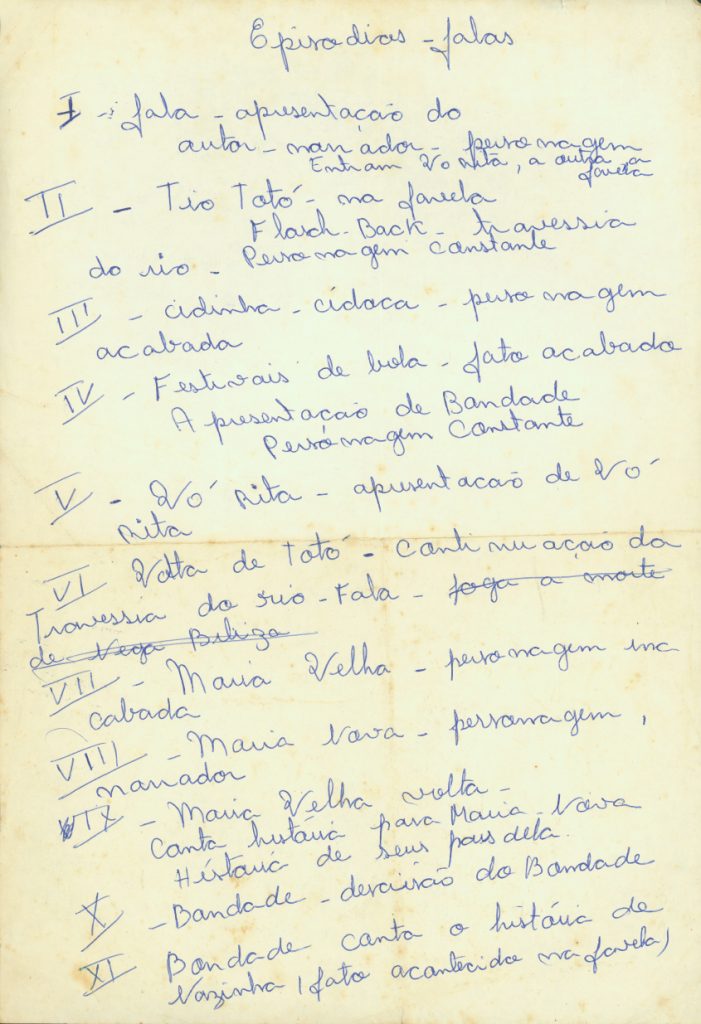 Episodios - falas
I - fala - apresentação do
autor - narrador - personagem
Entram Vó Rita, a outra, a
favela
II - Tio Totó - na favela
Flasch-Back - travessia
do rio - Personagem constante
III - cidinha - cidoca - personagem
acabada
IV - Festivais de bola - fato acabado
Apresentação de Bondade
Personagem Constante
V - Vó Rita - apresentação de Vó
Rita
VI Volta de Totó - continuação da
Travessia do rio - Fala - joga a morte
de Nega
VII - Maria Velha - personagem ina
cabada
VIII - Maria Nova - personagem,
narrador
IX - Maria Velha volta -
Conta história para Maria-Nova
História de seus pais dela.
X - Bondade - descrisão do Bondade
XI Bondade conta o história de
Nazinha (fato acontecido na favela)